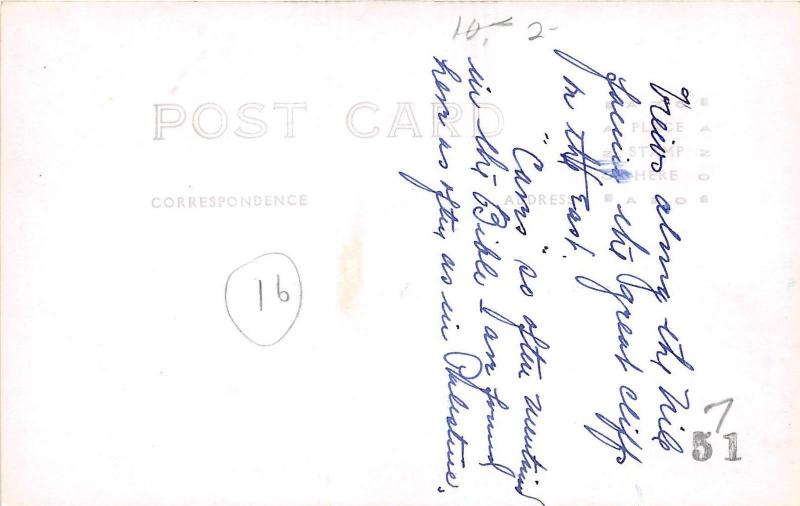 10 - 2 -
POST CARD
CORRESPONDENCE
ADDRESS
PLACE
STAMP
HERE
Views along the Nile
facing the great cliffs
on the East.
"Cams" so often mentiond
in the Bible I am found
here as often as in Palestine.
16
7
51